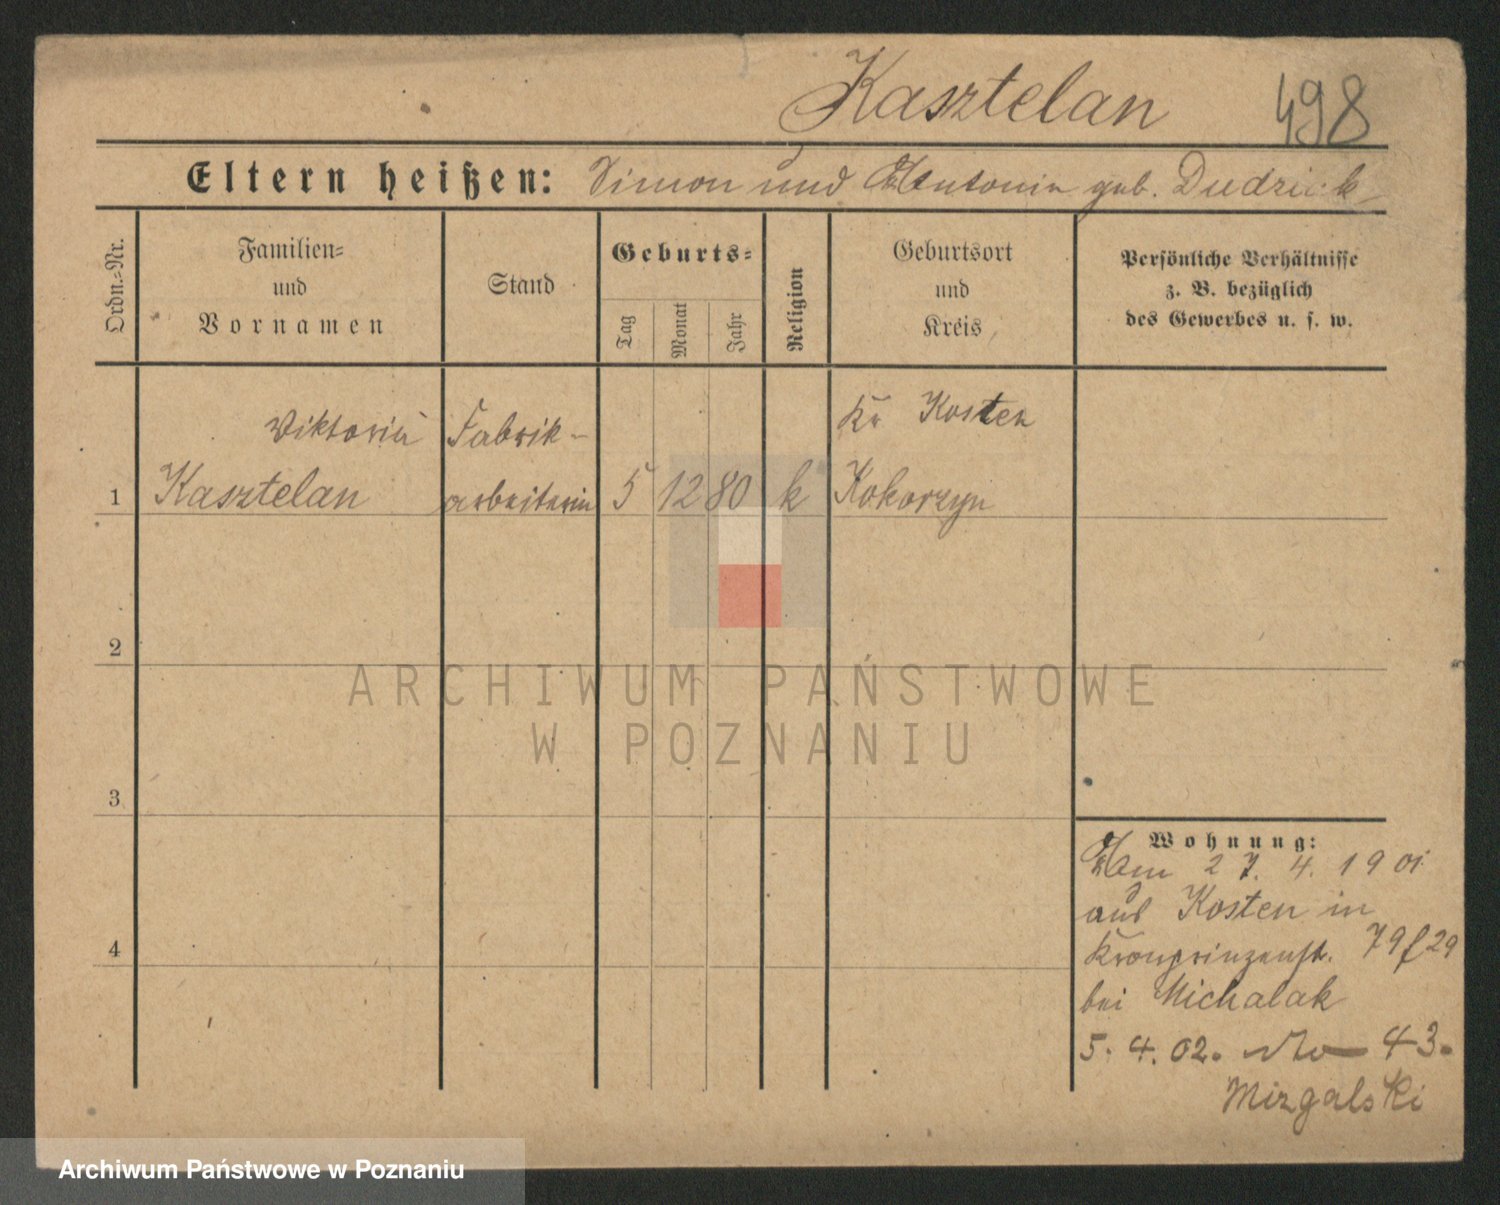 Kasztelan 498
Eltern heißen: Simon und Antonia geb.
Ordn.-Nr.
Familien-
und
Vornamen
Stand
Geburts-
Tag
Monat
Jahr
Religion
Geburtsort
und
Kreis
Persönliche Verhältnisse
z. B. bezüglich
des Gewerbes u. s. w.
Viktoria Fabrik- Kr Kosten
1 Kasztelan arbeiterin 5 12 80 k Kokorzyn
2
3
4
Wohnung:
Am 27. 4. 1901
aus Kosten in
Kronprinzenst. 79 f 29
bei Michalak
5. 4. 02. No 43.
Mizgalski
ARCHIWUM PAŃSTWOWE
W POZNANIU
Archiwum Państwowe w Poznaniu